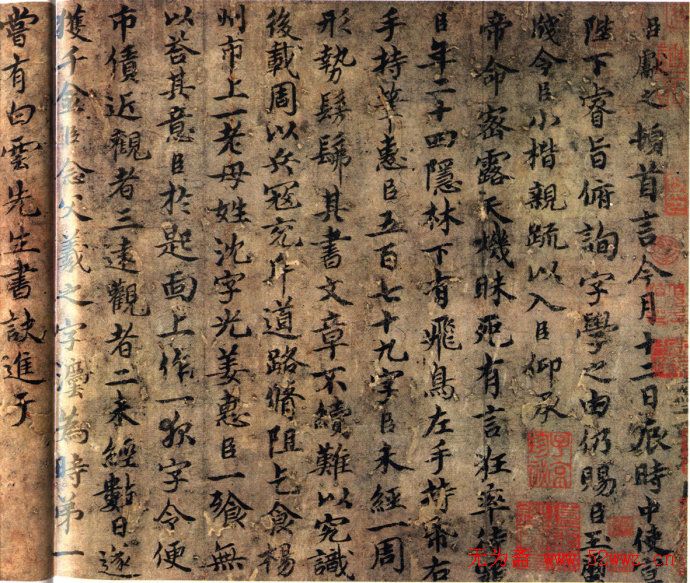 臣獻之頓首言今月十二日辰時中使宣
陛下睿旨俯詢字學之由仍賜臣玉璽
牋令臣小楷親疏以入臣仰承
帝命密露天機昧死有言狂率待罪
臣年二十四隱林下有飛鳥左手持帋右
手持筆惠臣五百七十九字臣未經一周
形勢髣髴其書文章不續難以究識
後載周以兵寇充斥道路脩阻乞食楊
州市上一老母姓沈字光姜惠臣一飱無
以荅其意臣於匙面上作一夜字令便
市債近觀者三遠觀者二未經數日遂
獲千金臣念父羲之字灋為時第一
嘗有白雲先生書訣進于